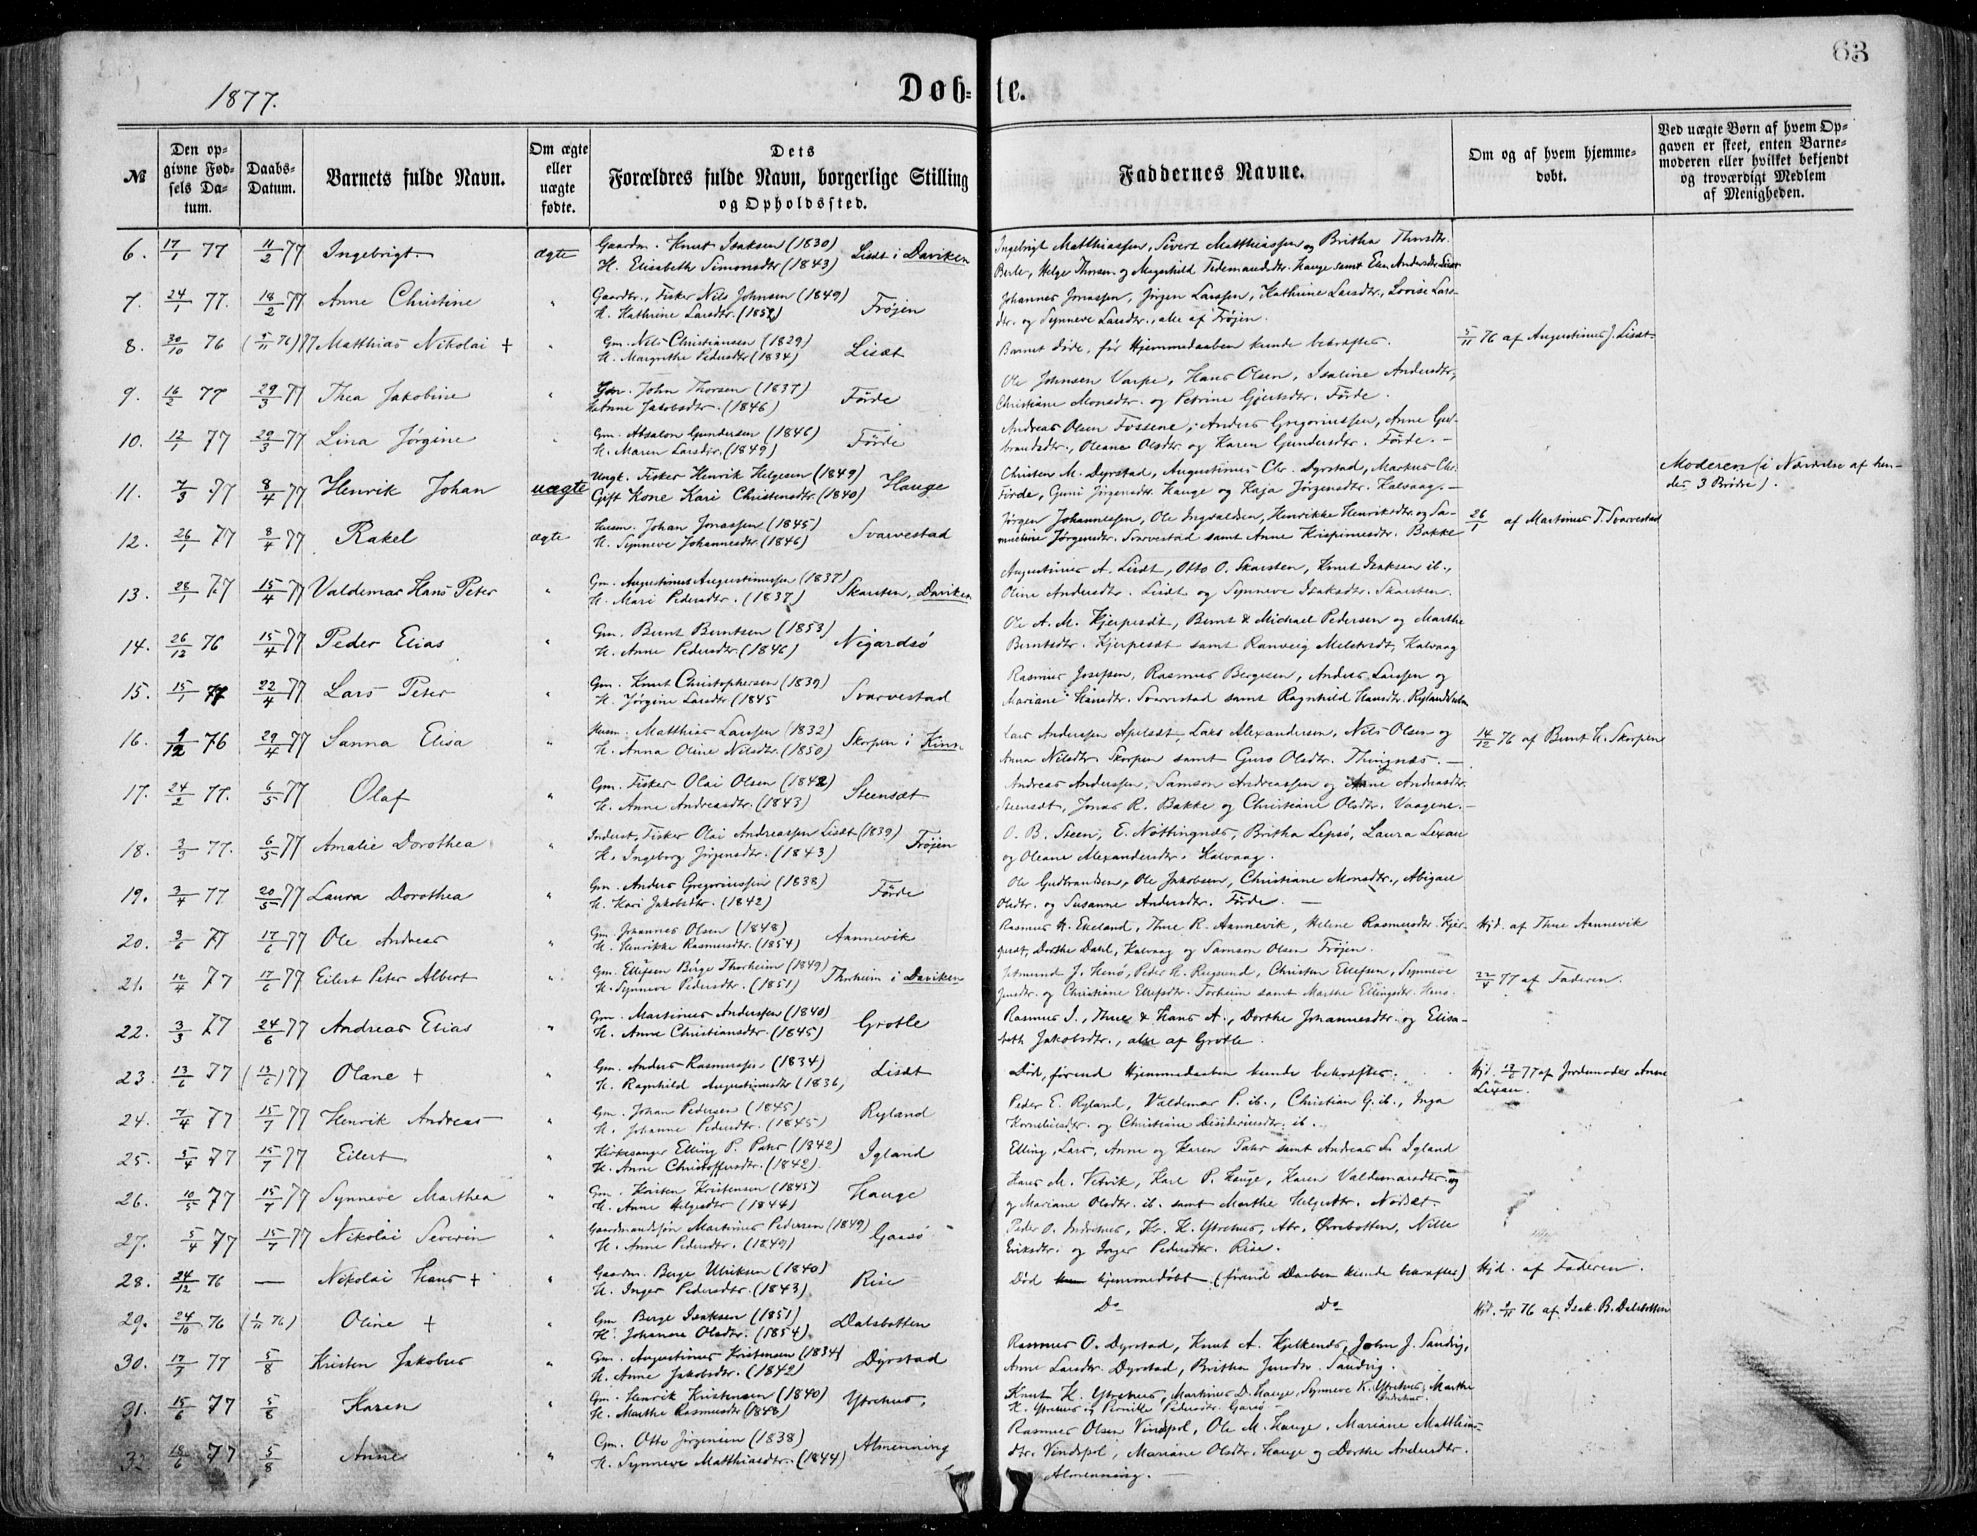 63
1877.
Døb-te.
№
Den op-
givne Fød-
sels Da-
tum.
Daabs-
Datum.
Barnets fulde Navn.
Om ægte
eller
uægte
fødte.
Dets
Forældres fulde Navn, borgerlige Stilling
og Opholdssted.
Faddernes Navne.
Om og af hvem hjemme-
døbt.
Ved uægte Børn af hvem Op-
gaven er skeet, enten Barne-
moderen eller hvilket bekjendt
og troværdigt Medlem
af Menigheden.
6. 17/1 77 11/2 77 Ingebrigt ægte Gaardm. Knut Isaksen (1830)
H. Elisabeth Simonsdtr (1843) Lisæt i Daviken
Ingebrigt Matthiassen, Sivert Matthiassen og Britha Thuesdtr.
Berle, Helge Thorsen og Magnhild Tedemandsdtr. Hauge samt Elen Andersdtr Lisæt
7. 24/1 77. 18/2 77 Anne Christine " Gaardbr., Fisker Nils Johnsen (1849)
H. Kathrine Larsdtr. (1852) Frøjen
Johannes Jonassen, Jørgen Larssen, Kathrine Larsdtr., Lovise Lars-
dtr. og Synneve Larsdtr., alle af Frøjen.
8. 30/10 76 (5/11 76) 77 Matthias Nikolai + " Gm. Nils Christiansen (1829)
H. Margrethe Pedersdtr (1834) Lisæt
Barnet døde, før Hjemmedaaben kunde bekræftes.
5/11 76 af Augustinus J. Lisæt
9. 16/2 77 29/3 77 Thea Jakobine " Gbr. John Thorsen (1837)
H. Anne Jakobsdtr. (1846) Førde
Ole Johnsen Varpe, Hans Olsen, Isaline Andersdtr,
Christiane Monsdtr. og Petrine Gjertsdtr. Førde.
10. 12/1 77 29/3 77 Lina Jørgine " Gm. Absalon Gundersen (1846)
H. Maren Larsdtr. (1849) Førde
Andreas Olsen Fossene, Anders Gregoriussen, Anne Gud-
brandsdtr., Oleane Olsdtr og Karen Gundersdtr. Førde. —
11. 7/3 77 8/4 77 Henrik Johan uægte Ungk. Fisker Henrik Helgesen (1849)
Gift Kone Kari Christensdtr. (1840) Hauge
Christen M. Dyrstad, Augustinus Chr. Dyrstad, Markus Chr.
Førde, Guni Jørgensdtr. Hauge og Kaja Jørgensdtr. Kalvaag. —
Moderen (i Nærværelse af hen-
des 3 Brødre).
12. 26/1 77 8/4 77 Rakel ægte Husm. Johan Jonassen (1845)
H. Synneve Johannesdtr (1846) Svarvestad
Jørgen Johannessen, Ole Ingvaldsen, Henrikke Henriksdtr. og Sa-
mueline Jørgensdtr. Svarvestad samt Anne Krispinusdtr. Bakke
26/1 af Martinus T. Svarvestad
13. 28/1 77 15/4 77 Valdemar Hans Peter " Gm. Augustinus Augustinussen (1837)
H. Mari Pedersdtr. (1837) Skarsten, Daviken
Augustinus A. Lisæt, Otto O. Skarsten, Knut Isaksen ib.,
Oline Andersdtr. Lisæt og Synneve Isaksdtr. Skarsten.
14. 26/12 76 15/4 77 Peder Elias " Gm. Bernt Berntsen (1853)
H. Anne Pedersdtr (1846) Nigardsø
Ole A. M. Hjerpesæt, Bernt & Michael Pedersen og Marthe
Berntsdtr. Hjerpesæt samt Ranveig Melstvedt, Kalvaag
15. 15/1 77 22/4 77 Lars Peter " Gm. Knut Christophersen (1839)
H. Jørgine Larsdtr (1845 Svarvestad
Rasmus Josefsen, Rasmus Bergesen, Anders Larssen og
Mariane Hansdtr. Svarvestad samt Ragnhild Hansdtr.
16. 9/12 76 29/4 77 Sanna Elisa " Husm. Matthias Larssen (1832)
H. Anna Oline Nilsdtr. (1850) Skorpen i Kinn
Lars Anderssen Apelsæt, Lars Alexandersen, Nils Olsen og
Anna Nilsdtr. Skorpen samt Guro Olsdtr. Thingnæs. —
14/12 76 af Bernt H. Skorpen
17. 24/2 77. 6/5 77 Olaf " Gm. Fisker Olai Olsen (1842)
H. Anne Andreasdtr. (1843) Steensæt
Andreas Anderssen, Samson Andreassen og Anne Andreasdtr.
Steensæt, Jonas R. Bakke og Christiane Olsdtr. Vaagene. —
18. 3/3 77. 6/5 77 Amalie Dorothea " Inderst, Fisker Olai Andreassen Lisæt (1839)
H. Ingeborg Jørgensdtr. (1843) Frøjen
O. B. Steen, E. Nøttingnæs, Britha Lepsø, Laura Lexau
og Oleane Alexandersdtr. Kalvaag.
19. 3/4 77 20/5 77 Laura Dorothea " Gm. Anders Gregoriussen (1838)
H. Kari Jakobsdtr. (1842) Førde
Ole Gudbrandsen, Ole Jakobsen, Christiane Monsdtr., Abigael
Olsdtr. og Susanne Andersdtr. Førde. —
20. 3/6 77 17/6 77 Ole Andreas " Gm. Johannes Olsen (1848)
H. Henrikke Rasmusdtr. (1854) Aannevik
Rasmus K. Ekeland, Thue R. Aannevik, Helene Rasmusdtr. Hjer-
pesæt, Dorthe Dahl, Kalvaag og Samson Olsen Frøjen.
Hjd. af Thue Aannevik
21. 12/4 77 17/6 77 Eilert Peter Albert " Gm. Ellefsen Børge Thorheim (1849)
H. Synneve Pedersdtr. (1851) Thorheim i Daviken
Jetmund J. Henø, Peder R. Rugsund, Christen Ellefsen, Synneve
Jensdtr. og Christiane Ellefsdtr. Torheim samt Marthe Ellingsdtr. Henø.
22/4 77 af Faderen.
22. 3/3 77 24/6 77 Andreas Elias " Gm. Martinus Anderssen (1840)
H. Anne Christiansdtr (1845) Grotle
Rasmus I., Thue & Hans A., Dorthe Johannesdtr. og Elisa-
beth Jakobsdtr., alle af Grotle.
23. 13/6 77 (13/6) 77 Olane + " Gm. Anders Rasmussen (1834)
H. Ragnhild Augustinusdtr (1836) Lisæt
Død, førend Hjemmedaaben kunde bekræftes.
Hjd. 13/6 77 af Jordemoder Anne
Lexau.
24. 7/4 77 15/7 77 Henrik Andreas " Gm. Johan Pedersen (1845)
H. Johanne Pedersdtr. (1845) Ryland
Peder E. Ryland, Valdemar P. ib., Christian G. ib., Inga
Korneliusdtr. og Christiane Desideriusdtr. ib.
25. 5/4 77 15/7 77 Eilert " Kirkesanger Elling P. Pahr (1842)
H. Anne Christoffersdtr. (1842) Igland
Elling, Lars, Anne og Karen Pahr samt Andreas S. Igland
26. 10/5 77 15/7 77 Synneve Marthea " Gm. Kristen Kristensen (1845)
H. Anne Helgesdtr (1844) Hauge
Hans M. Vetvik, Karl P. Hauge, Karen Valdemarsdtr og
og Mariane Olsdtr. ib. samt Marthe Helgesdtr. Nødset.
27. 5/4 77 15/7 77 Nikolai Severin " Gaardmandssøn Martinus Pedersen (1849)
H. Anne Pedersdtr. (1849) Gaasø
Peder O. Indrehus, Kr. K. Ytrehus, Abr. Øvrebotten, Nille
Eriksdtr. og Inger Pedersdtr. Rise.
28. 24/12 76 — Nikolai Hans + " Gaardm. Berge Ulriksen (1840)
H. Inger Pedersdtr. (1843) Rise
Død hjemmedøbt (førend Daaben kunde bekræftes)
Hjd. af Faderen.
29. 24/10 76 (1/11 76) Oline + " Gm Berge Isaksen (1851)
H. Johanne Olsdtr. (1854) Dalsbotten
Do do
Hjd. 9/11 76 af Isak B. Dalsbotten
30. 17/7 77 5/8 Kristen Jakobus " Gm. Augustinus Kristensen (1834)
H. Anne Jakobsdtr. (1842) Dyrstad
Rasmus O. Dyrstad, Knut A. Hjelkenes, John J. Sandvig,
Anne Larsdtr. Dyrstad, Britha Jensdtr. Sandvig.
31. 15/6 77 5/8 Karen " Gm. Henrik Kristensen (1840)
H. Marthe Rasmusdtr (1848) Ytrehus,
Knut K. Ytrehus, Martinus D. Hauge, Synneve K. Ytrehus, Marthe
K. Ytrehus og Pernille Pedersdtr. Gaasø —
32 18/6 77 5/8 Anne " Gm. Otto Jørgensen (1838)
H. Synneve Matthiasdtr. (1844) Almenning
Rasmus Olsen Vindspol, Ole M. Hauge, Mariane Matthias-
dtr. Vindspol, Mariane Olsdtr. Hauge og Dorthe Andersdtr.
Almenning. —